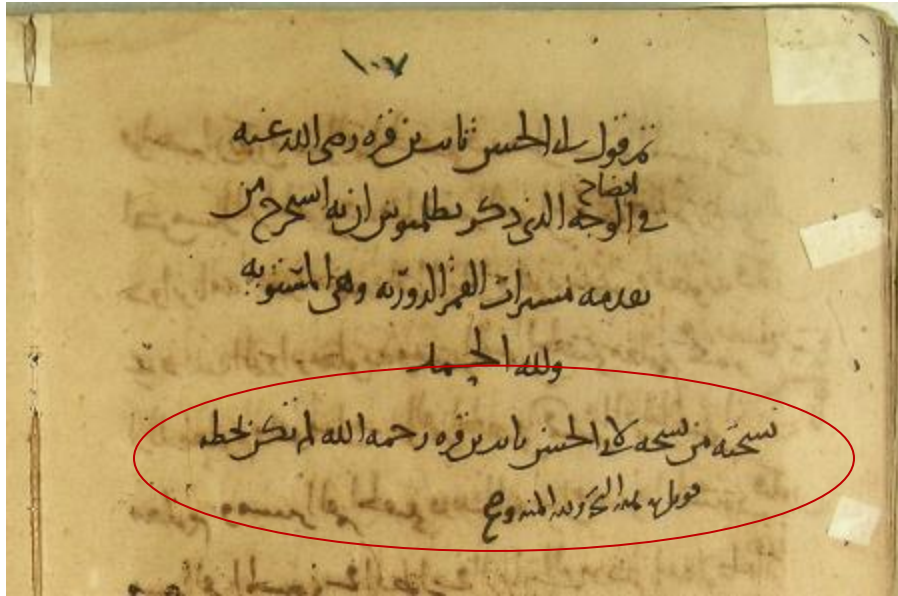 ١٠٧
تم قول لابى الحسن ثابت بن قره رضى الله عنه
فى ايضاح الوجه الذى ذكر بطلميوس ان به استخرج من
تقدمه مسيرات القمر الدوريه وهى المستويه
ولله الحمد
نسخته من نسخه لابى الحسن ثابت بن قره رحمه الله لم تكن بخطه
قوبل به